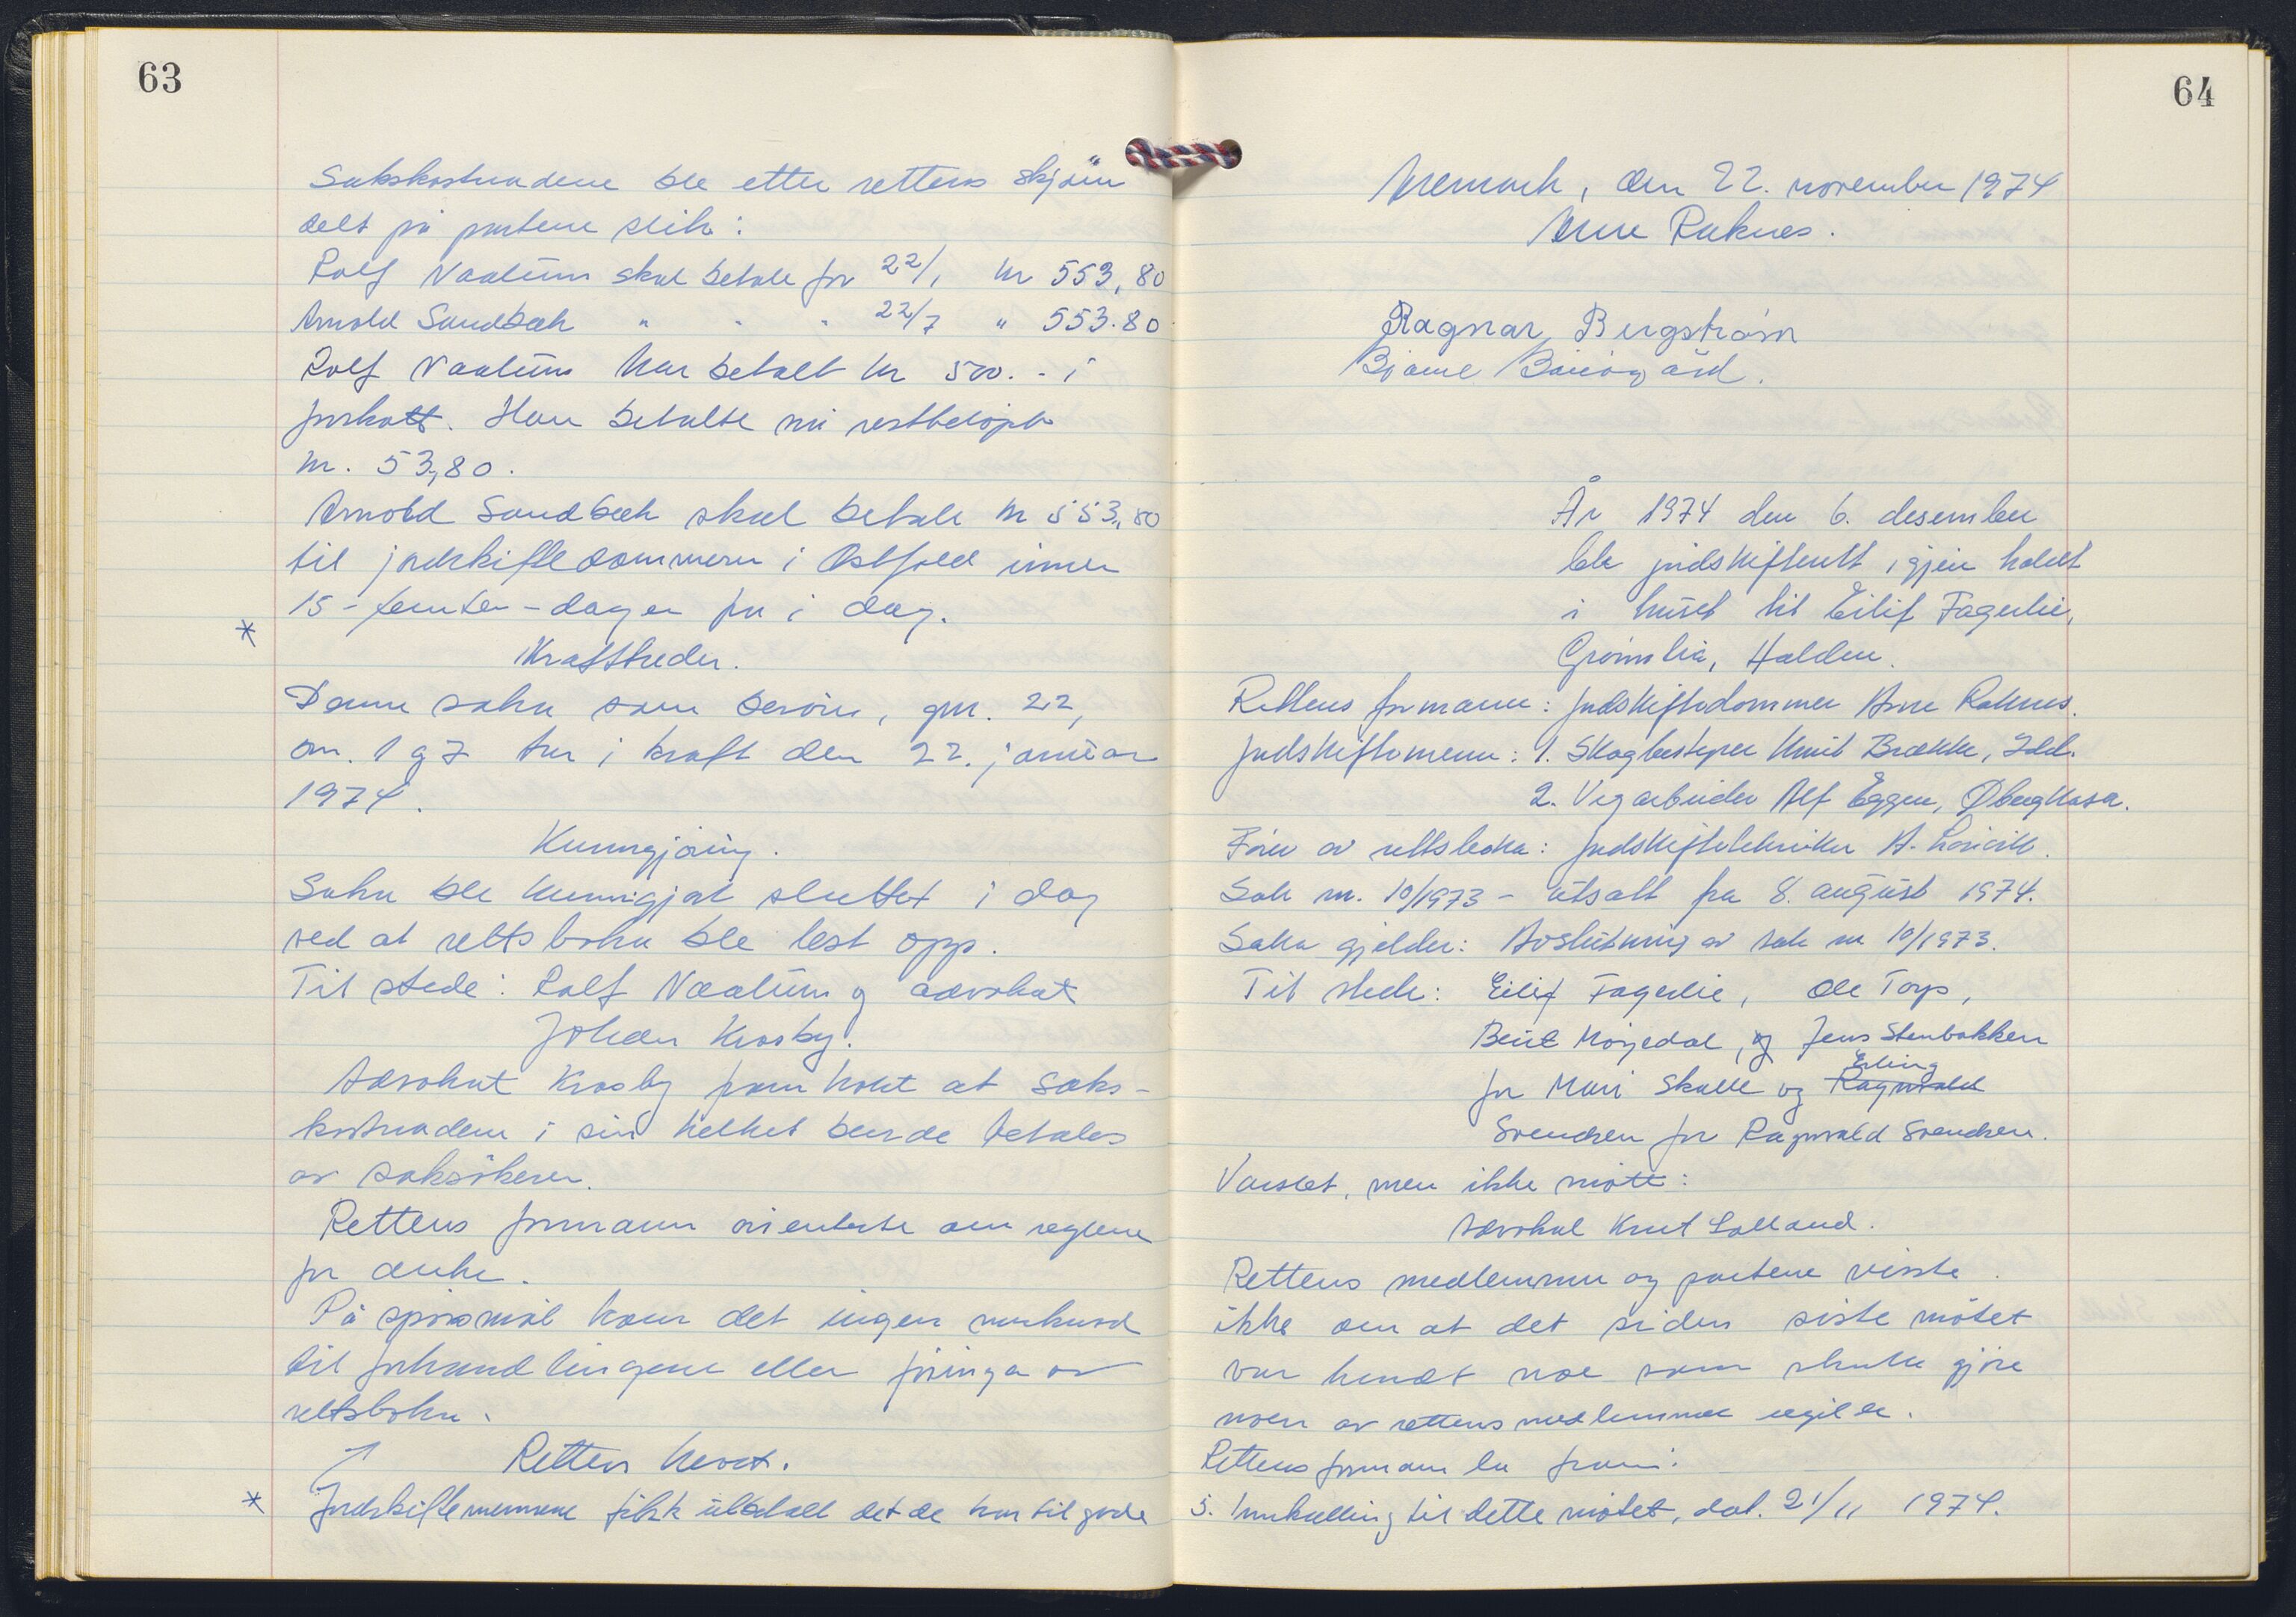 63
Sakskostnadene ble etter rettens skjönn
delt på partene slik:
Rolf Naalum skal betale for 22/1 kr 553,80
Arnold Sandbæk " " " 22/7 " 553.80
Rolf Naalum har betalt kr 500.- i
forskott. Han betalte nå restbelöpet
kr. 53,80.
Arnold Sandbæk skal betale kr 553,80
til jordskiftedommeren i Østfold innen
15-femten-dager fra i dag.
*
Ikrafttreden.
Denne saken som berörer, gnr. 22,
bnr. 1 og 7 trer i kraft den 22. januar
1974.
Kunngjöring.
Saken ble kunngjort sluttet i dag
ved at rettsboka ble lest opp.
Til stede: Rolf Naalum og advokat
Johan Krosby.
Advokat Krosby framholdt at saks-
kostnadene i sin helhet burde betales
av saksökeren.
Rettens formann orienterte om reglene
for anke.
På spörsmål kom det ingen merknad
til forhandlingene eller föringa av
rettsboka.
Retten hevet.
* Jordskiftemennene fikk utbetalt det de har til gode
64
Aremark, den 22. november 1974
Arne Raknes.
Ragnar Bergström
Bjarne
År 1974 den 6. desember
ble jordskifterett igjen holdt
i huset til Eilif Fagerlie,
Grönnlia, Halden.
Rettens formann: Jordskiftedommer Arne Raknes.
Jordskiftemenn: 1. Skogbestyrer Knut Brække, Idd.
2. Vegarbeider Alf Eggen, Øbergkasa.
Förer av rettsboka: Jordskiftetekniker A.
Sak nr. 10/1973 - utsatt fra 8. august 1974.
Saka gjelder: Avslutning av sak nr 10/1973.
Til stede: Eilif Fagerlie, Ole Torp,
Berit Mörjedal, og Jens Stenbakken
for Mari Skalle og Ragnvald Erling
Svendsen for Ragnvald Svendsen.
Varslet, men ikke mött:
Advokat Knut Salland.
Rettens medlemmer og partene visste
ikke om at det siden siste mötet
var hendt noe som skulle gjöre
noen av rettens medlemmer ugilde.
Rettens formann la fram:
5. Innkalling til dette mötet, dat. 21/11 1974.